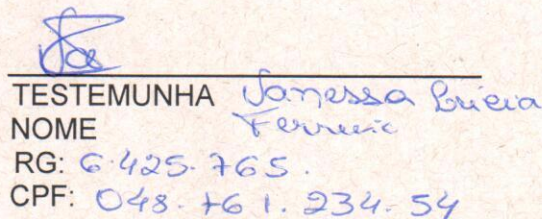 TESTEMUNHA Vanessa Lucia
NOME
RG: 6.425.765.
CPF: 048.761.234.54